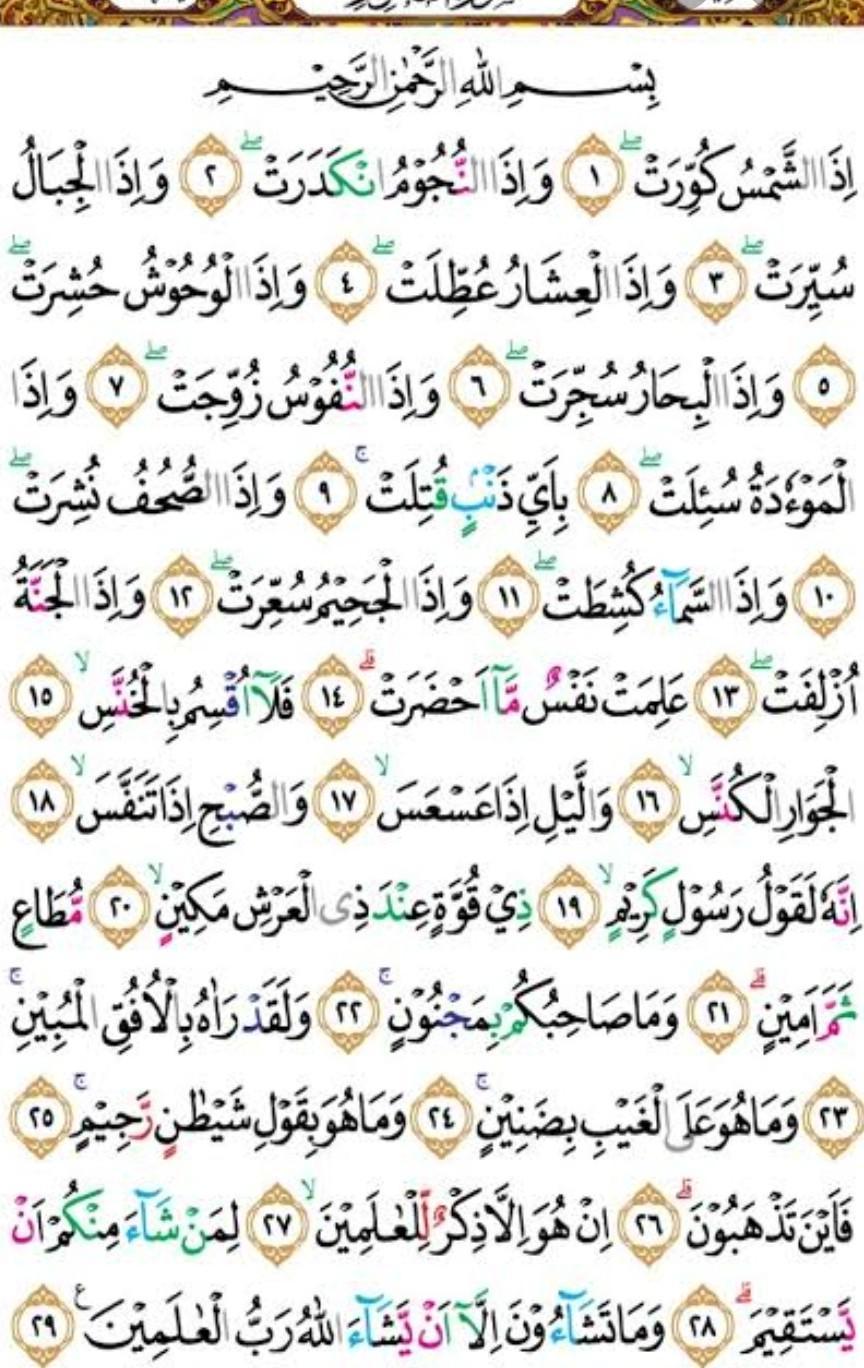 بِسْمِ اللهِ الرَّحْمٰنِ الرَّحِيْمِ
اِذَا الشَّمْسُ كُوِّرَتْ ۖ ١ وَاِذَا النُّجُوْمُ انْكَدَرَتْ ۖ ٢ وَاِذَا الْجِبَالُ
سُيِّرَتْ ۖ ٣ وَاِذَا الْعِشَارُ عُطِّلَتْ ۖ ٤ وَاِذَا الْوُحُوْشُ حُشِرَتْ ۖ
٥ وَاِذَا الْبِحَارُ سُجِّرَتْ ۖ ٦ وَاِذَا النُّفُوْسُ زُوِّجَتْ ۖ ٧ وَاِذَا
الْمَوْءٗدَةُ سُئِلَتْ ۖ ٨ بِاَيِّ ذَنْۢبٍ قُتِلَتْ ۚ ٩ وَاِذَا الصُّحُفُ نُشِرَتْ ۖ
١٠ وَاِذَا السَّمَاۤءُ كُشِطَتْ ۖ ١١ وَاِذَا الْجَحِيْمُ سُعِّرَتْ ۖ ١٢ وَاِذَا الْجَنَّةُ
اُزْلِفَتْ ۖ ١٣ عَلِمَتْ نَفْسٌ مَّآ اَحْضَرَتْ ۗ ١٤ فَلَآ اُقْسِمُ بِالْخُنَّسِ ۙ ١٥
الْجَوَارِ الْكُنَّسِ ۙ ١٦ وَالَّيْلِ اِذَا عَسْعَسَ ۙ ١٧ وَالصُّبْحِ اِذَا تَنَفَّسَ ۙ ١٨
اِنَّهٗ لَقَوْلُ رَسُوْلٍ كَرِيْمٍ ۙ ١٩ ذِيْ قُوَّةٍ عِنْدَ ذِى الْعَرْشِ مَكِيْنٍ ۙ ٢٠ مُّطَاعٍ
ثَمَّ اَمِيْنٍ ۗ ٢١ وَمَا صَاحِبُكُمْ بِمَجْنُوْنٍ ۚ ٢٢ وَلَقَدْ رَاٰهُ بِالْاُفُقِ الْمُبِيْنِ ۚ
٢٣ وَمَا هُوَ عَلَى الْغَيْبِ بِضَنِيْنٍ ۚ ٢٤ وَمَا هُوَ بِقَوْلِ شَيْطٰنٍ رَّجِيْمٍ ۚ ٢٥
فَاَيْنَ تَذْهَبُوْنَ ۗ ٢٦ اِنْ هُوَ اِلَّا ذِكْرٌ لِّلْعٰلَمِيْنَ ۙ ٢٧ لِمَنْ شَاۤءَ مِنْكُمْ اَنْ
يَّسْتَقِيْمَ ۗ ٢٨ وَمَا تَشَاۤءُوْنَ اِلَّآ اَنْ يَّشَاۤءَ اللهُ رَبُّ الْعٰلَمِيْنَ ࣖ ٢٩